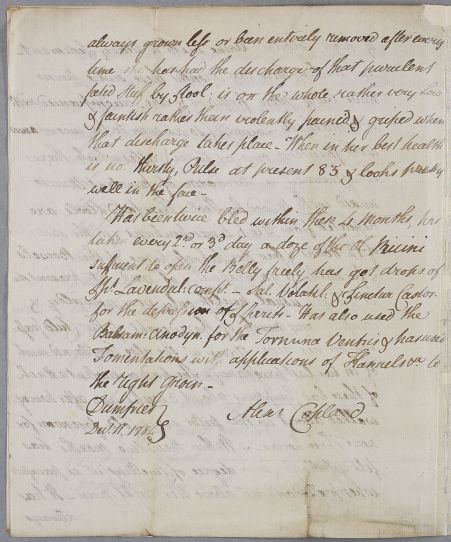 always grown less or been entirely removed after every
time she has had the discharge of that purulent
fœted stuff by stool is on the whole rather very low
& faintish rather than violently pained & griped when
that discharge takes place - When in her best health
is no thirsty, Pulse at present 83 & looks pretty
well in the face -
Has been twice bled within these 4 months, has
taken every 2d or 3d day a doze of the ol. Ricini
sufficient to open the Belly freely has got drops of
Spt. Lavendul: compt. - Sal. Volatil: & Tinctur Castor.
for the depression of spirits - Has also used the
Balsam: Anodyn. for the Tormina Ventris & has used
Fomentations wt. applications of Flannels &c to
the right Groin -
Dumfries
Alexr. Copland
1784